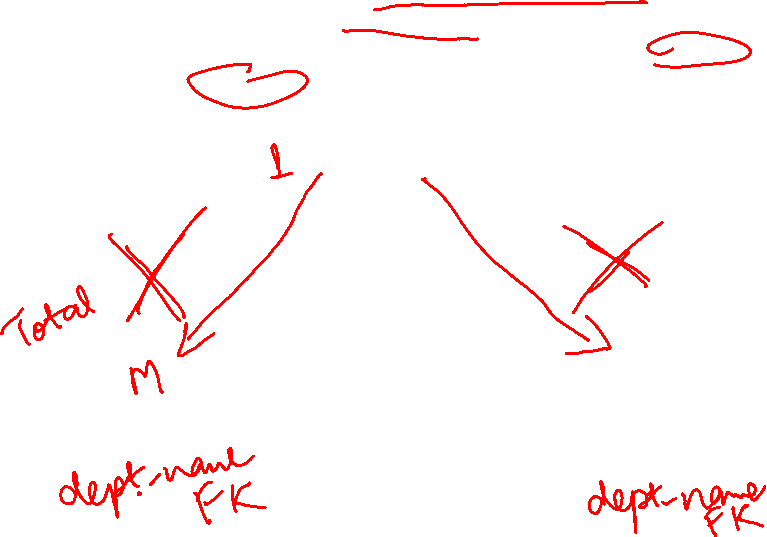 1
Total
M
dept-name
FK
dept-name
FK